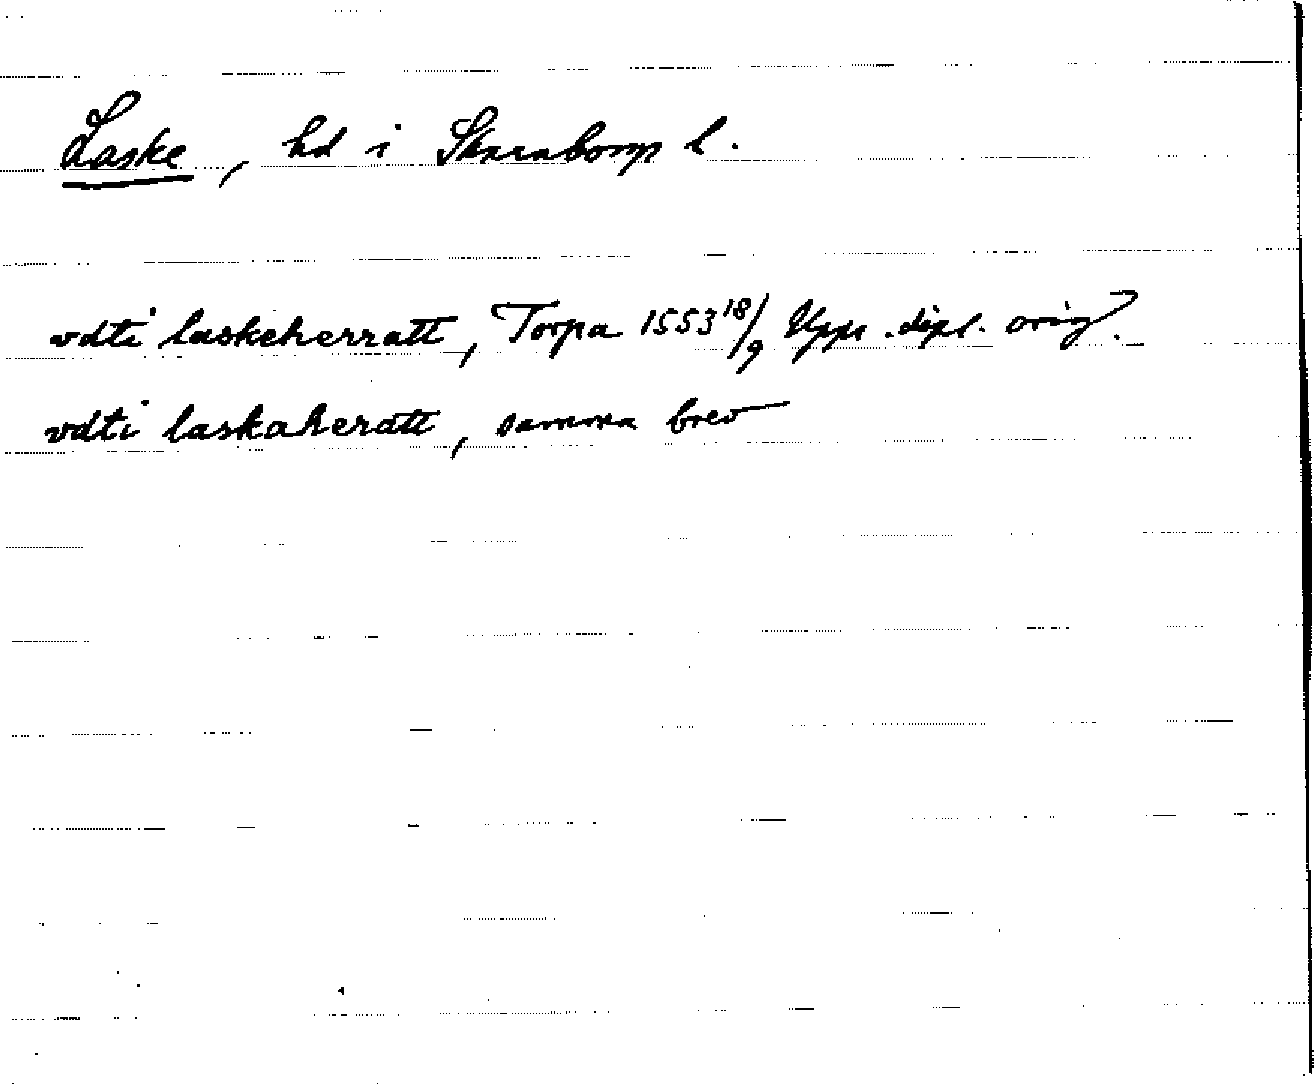 Laske, hd i Skaraborgs l.
vdti laskeherratt, Torpa 1553 18/9 Upps. dipl. orig.
vdti laskaheratt, samma brev